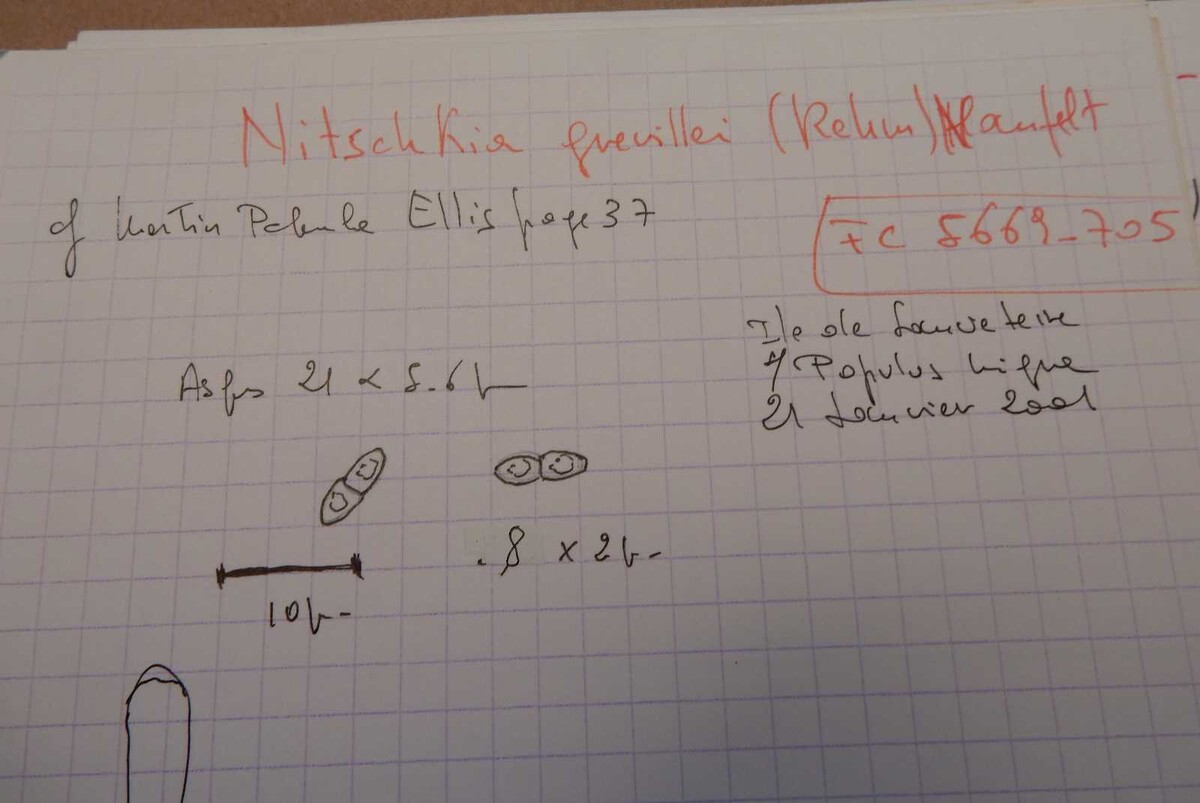 Nitschkia grevillei (Rehm) Nanfelt
cf Martin Patule Ellis page 37
FC 5669-705
Ile de Sauveterre
s/ Populus nigra
21 Janvier 2001
Asques 21 x 5-6 µ
8 x 2 µ
10 µ